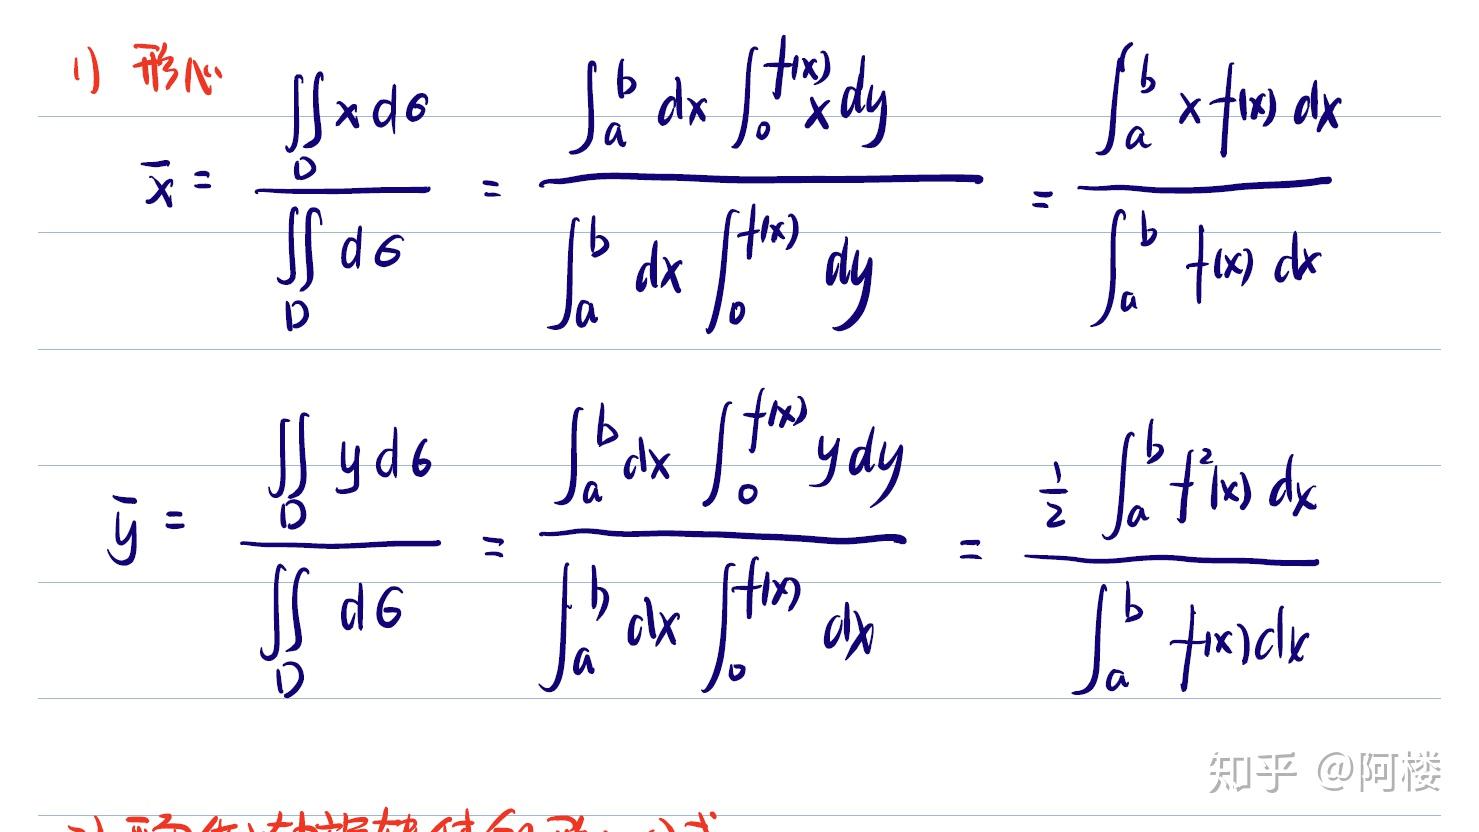 1) 形心
x̄ = ∬_D x dσ / ∬_D dσ = ∫_a^b dx ∫_0^{f(x)} x dy / ∫_a^b dx ∫_0^{f(x)} dy = ∫_a^b x f(x) dx / ∫_a^b f(x) dx
ȳ = ∬_D y dσ / ∬_D dσ = ∫_a^b dx ∫_0^{f(x)} y dy / ∫_a^b dx ∫_0^{f(x)} dx = 1/2 ∫_a^b f²(x) dx / ∫_a^b f(x) dx
知乎 @阿楼